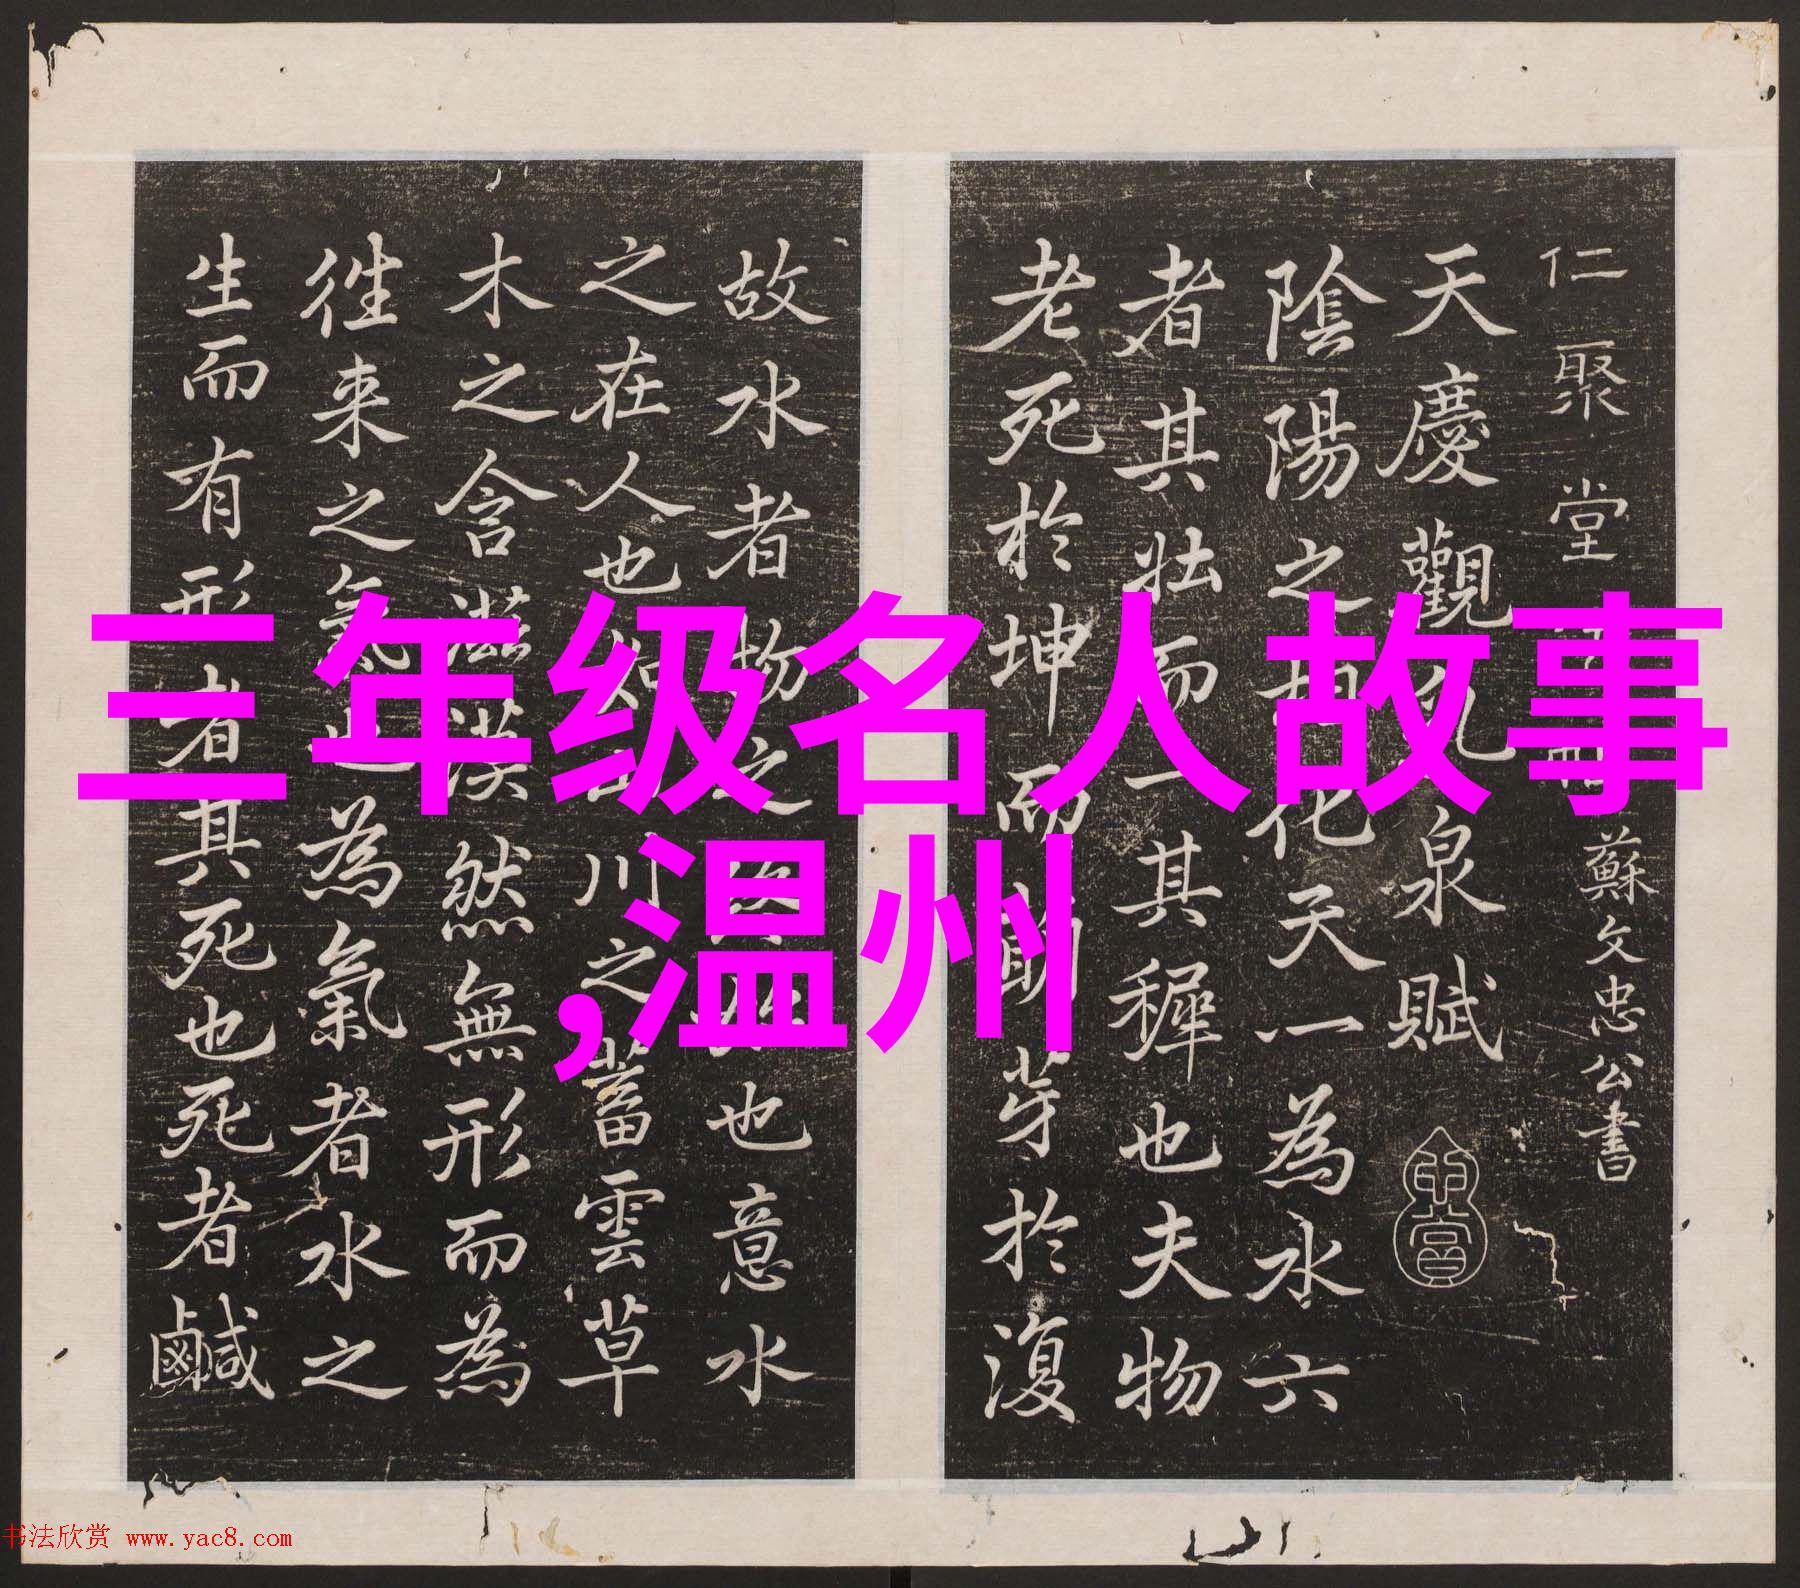 三年级名人故事
,温州
仁聚堂
蘇文忠公書
天慶觀乳泉賦
陰陽之相化天一為水六
者其壯而一其穉也夫物
老死於坤而萌芽於復
故水者物之也意水
之在人也如川之蓄雲草
木之含滋漠然無形而為
往来之氣也為氣者水之
生而有形者其死也死者鹹
书法欣赏 www.yac8.com